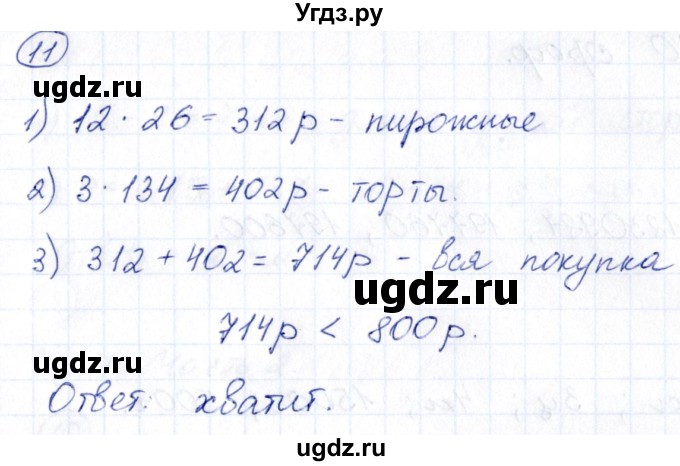 Угдз.ру
11
ugdz.ru
ugdz.ru
1) 12 · 26 = 312р - пирожные
ugdz.ru
2) 3 · 134 = 402р - торты.
3) 312 + 402 = 714р - вся покупка
ugdz.ru
714р < 800р.
ugdz.ru
ugdz.ru
Ответ: хватит.
ugdz.ru
ugdz.ru